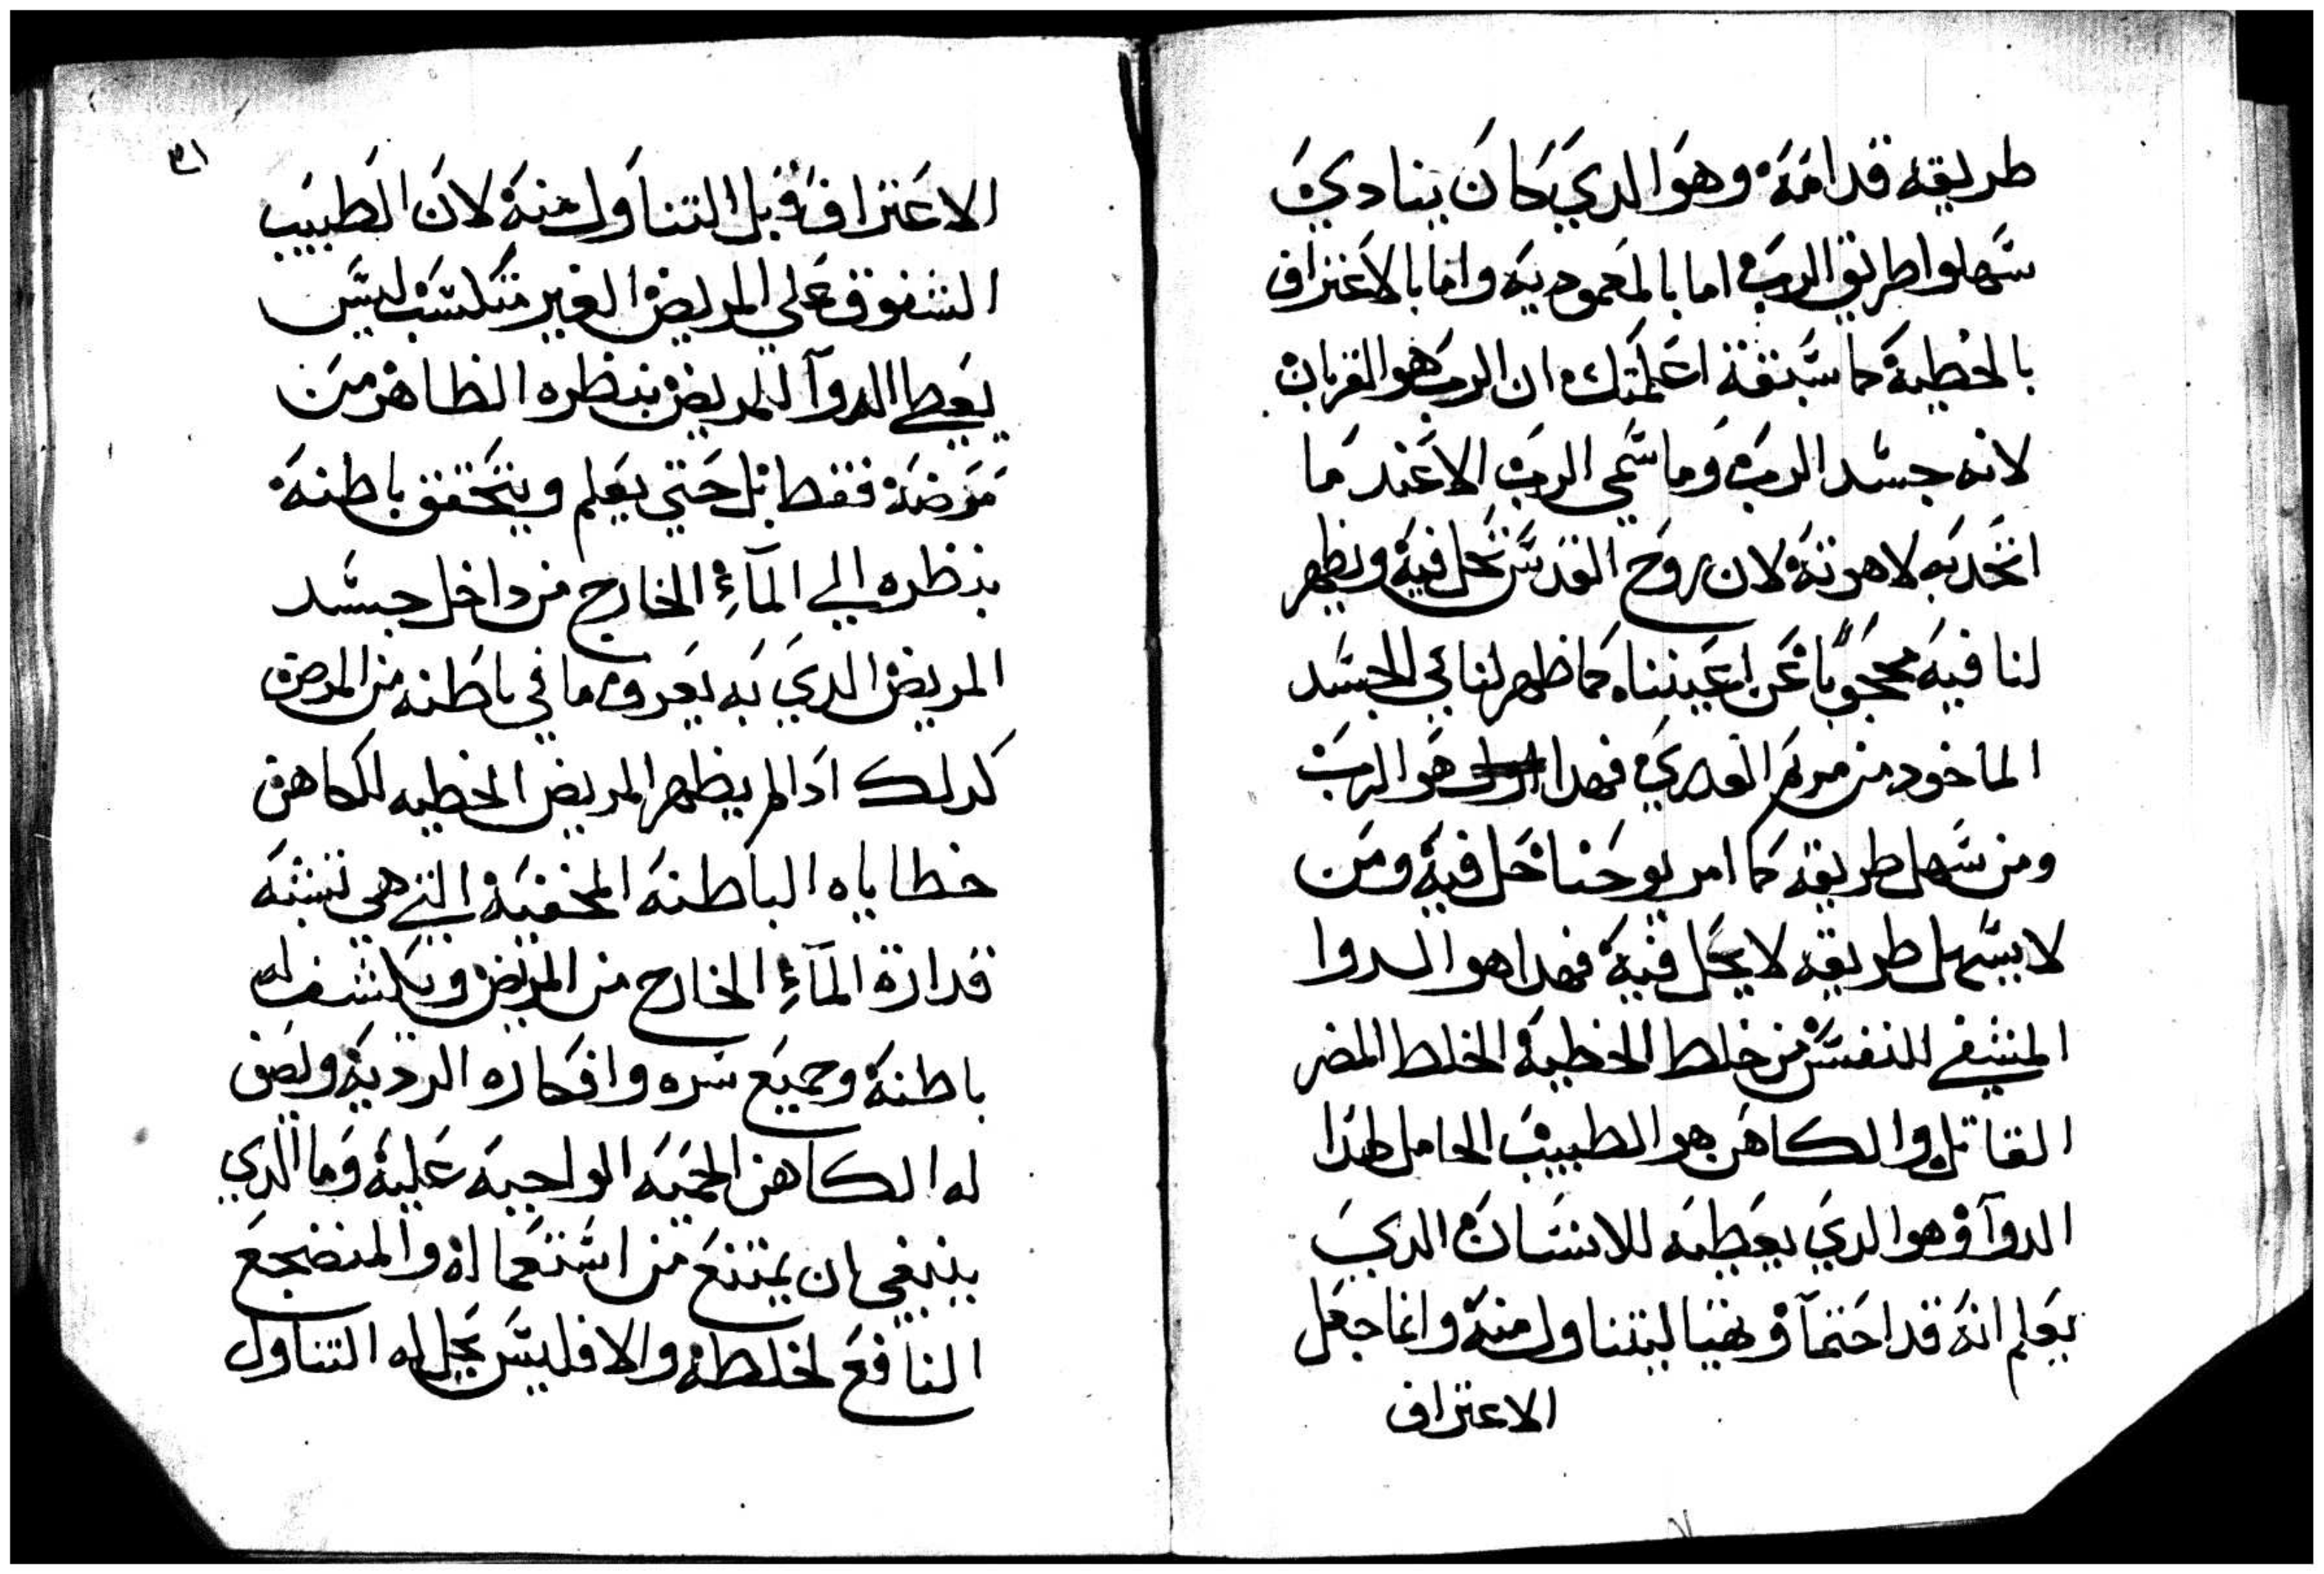 طريقه قدامه وهو الدي كان ينادي
سهلوا طريق الرب اما بالمعموديه واما بالاعتراف
بالخطية كما سبقة اعلمتك ان الرب هو القربان
لانه جسد الرب وما سمي الرب الا عند ما
اتحد به لاهوته لان روح القدس تحل فيه ويظهر
لنا فيه محجوبًا عن اعيننا كما ظهر لنا في الجسد
الماخود من مريم العدري فهدا هو الرب
ومن سهل طريقه كما امر يوحنا حل فيه ومن
لا يسهل طريقه لا يحل فيه فهدا هو الدوا
المشفي للنفس من خلط الخطية الخلط المضر
القاتل والكاهن هو الطبيب الحامل لهدا
الدوآ وهو الدي يعطيه للانسان الدي
يعلم انه قد احتمآ وتهيا ليتناول منه وانما جعل
الاعتراف
٣١
الاعتراف قبل التناول منه لان الطبيب
الشفوق علي المريض الغير متكسب ليس
يعطي الدوآ للمريض بنظره الظاهر من
مرضه فقط بل حتي يعلم ويتحقق باطنه
بنظره الي المآءِ الخارج من داخل جسد
المريض الدي به يعرف ما في باطنه من المرض
كدلك ادا لم يظهر المريض الخطيه للكاهن
خطاياه الباطنه المخفيه التي هي تشبه
قدارة المآءِ الخارج من المريض ويكشف له
باطنه وجميع سره وافكاره الرديه ويصف
له الكاهن الحميه الواجبه عليه وما الدي
ينبغي ان يمتنع من استعماله والمنضجع
النافع لخلطه والا فليس يحل له التناول